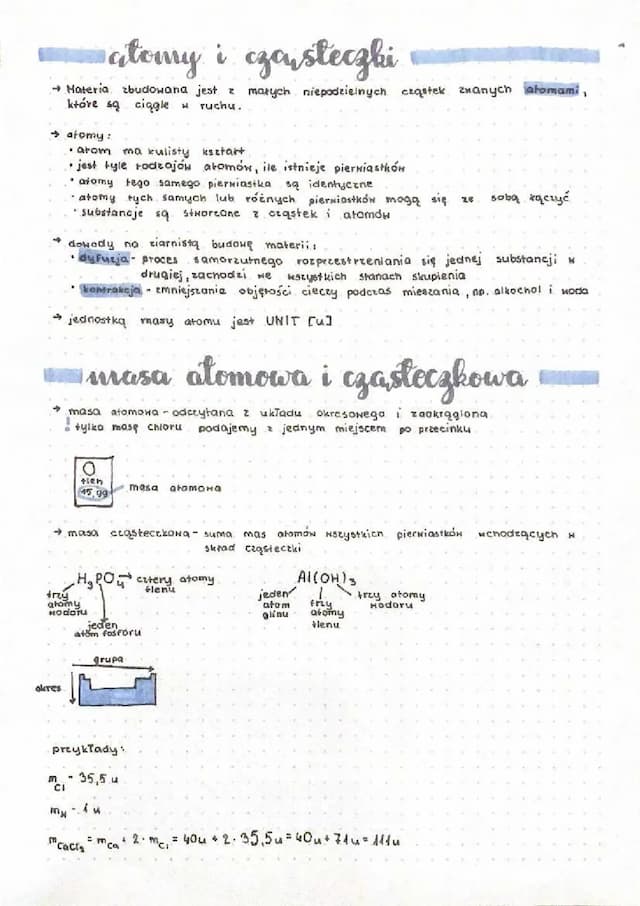 atomy i cząsteczki
→ Materia zbudowana jest z małych niepodzielnych cząstek zwanych atomami,
które są ciągle w ruchu.
→ atomy:
• atom ma kulisty kształt
• jest tyle rodzajów atomów, ile istnieje pierwiastków
• atomy tego samego pierwiastka są identyczne
• atomy tych samych lub różnych pierwiastków mogą się ze sobą łączyć
• substancje są stworzone z cząstek i atomów
→ dowody na ziarnistą budowę materii:
• dyfuzja - proces samorzutnego rozprzestrzeniania się jednej substancji w
drugiej, zachodzi we wszystkich stanach skupienia
• kontrakcja - zmniejszania objętości cieczy podczas mieszania, np. alkochol i woda
→ jednostką masy atomu jest UNIT [u]
masa atomowa i cząsteczkowa
→ masa atomowa - odczytana z układu okresowego i zaokrąglona
! tylko masę chloru podajemy z jednym miejscem po przecinku
O
tlen
15,99
masa atomowa
→ masa cząsteczkowa - suma mas atomów wszystkich pierwiastków wchodzących w
skład cząsteczki
H₃PO₄ → cztery atomy
tlenu
trzy
atomy
wodoru
jeden
atom fosforu
Al(OH)₃
jeden
atom
glinu
trzy
atomy
tlenu
trzy atomy
wodoru
grupa
okres
przykłady:
m Cl = 35,5 u
m H = 1 u
m CaCl₂ = m Ca + 2 · m Cl = 40u + 2 · 35,5u = 40u + 71u = 111u